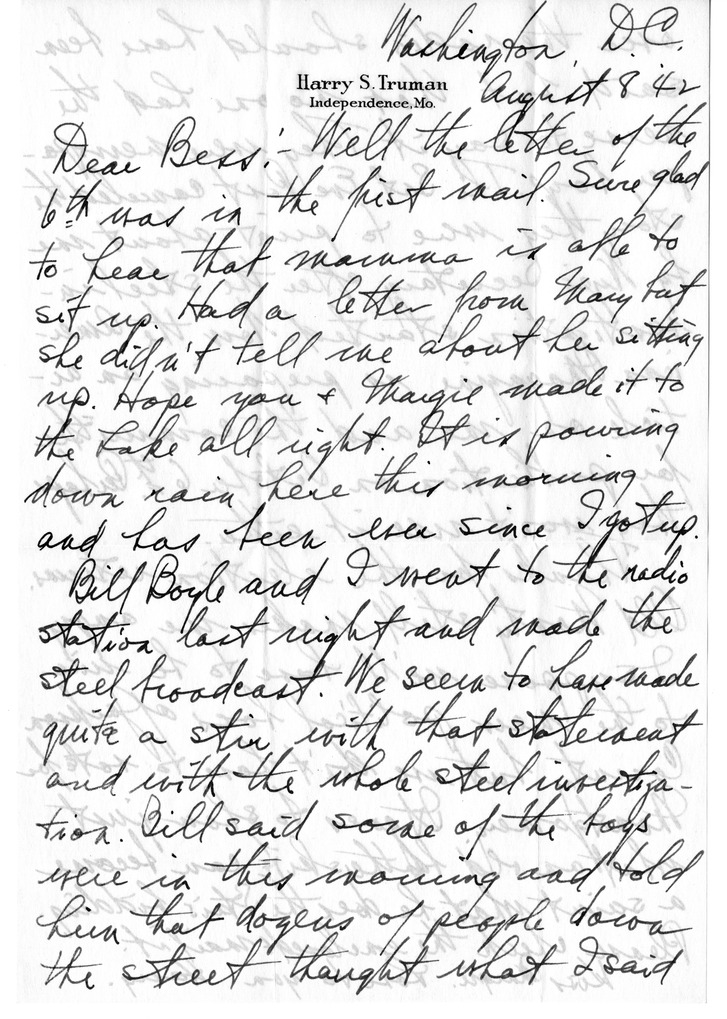 Washington, D.C.
Harry S. Truman
Independence, Mo.
August 8 '42
Dear Bess:- Well the letter of the
6th was in the first mail. Sure glad
to hear that mamma is able to
sit up. Had a letter from Mary but
she didn't tell me about her sitting
up. Hope you & Margie made it to
the Lake all right. It is pouring
down rain here this morning
and has been ever since I got up.
Bill Boyle and I went to the radio
station last night and made the
steel broadcast. We seem to have made
quite a stir with that statement
and with the whole steel investiga-
tion. Bill said some of the boys
were in this morning and told
him that dozens of people down
the street thought what I said